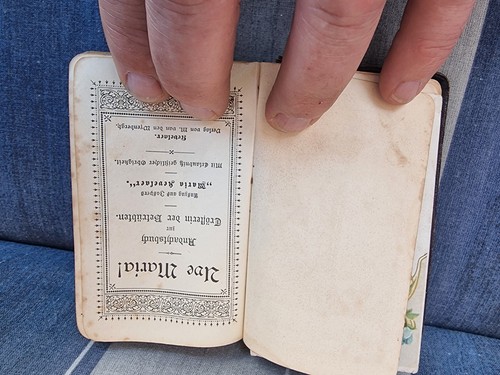 Ave Maria!
Andachtsbuch
zur
Trösterin der Betrübten.
Auszug aus Jospers
„Maria Kevelaer“.
Mit Erlaubniß geistlicher Obrigkeit.
Kevelaer.
Verlag von M. van den Wyenbergh.